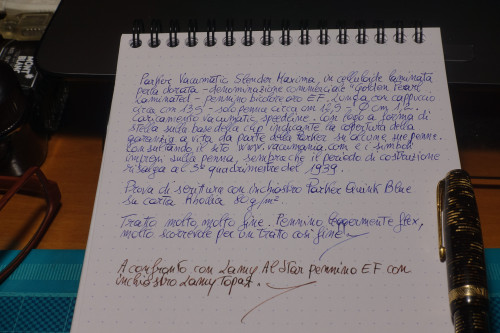 Parker Vacumatic Slender Maxima, in celluloide laminata
perla dorata - denominazione commerciale "Golden Pearl
Laminated - pennino bicolore oro EF. Lunga con cappuccio
circa cm 13,5 - solo penna circa cm 12,3 - Ø cm 1,2.
Caricamento vacumatic speedline. Con logo a forma di
stella sulla base della clip indicante la copertura della
garanzia a vita da parte della Parker su alcune sue penne.
Consultando il sito www.vacumania.com e i simboli
impressi sulla penna, sembra che il periodo di costruzione
risalga al 3° quadrimestre del 1939.
Prova di scrittura con inchiostro Parker Quink Blue
su carta Rhodia 80 g/m².
Tratto molto, molto fine. Pennino leggermente flex,
molto scorrevole per un tratto così fine.
A confronto con Lamy Al Star pennino EF con
inchiostro Lamy Topaz.